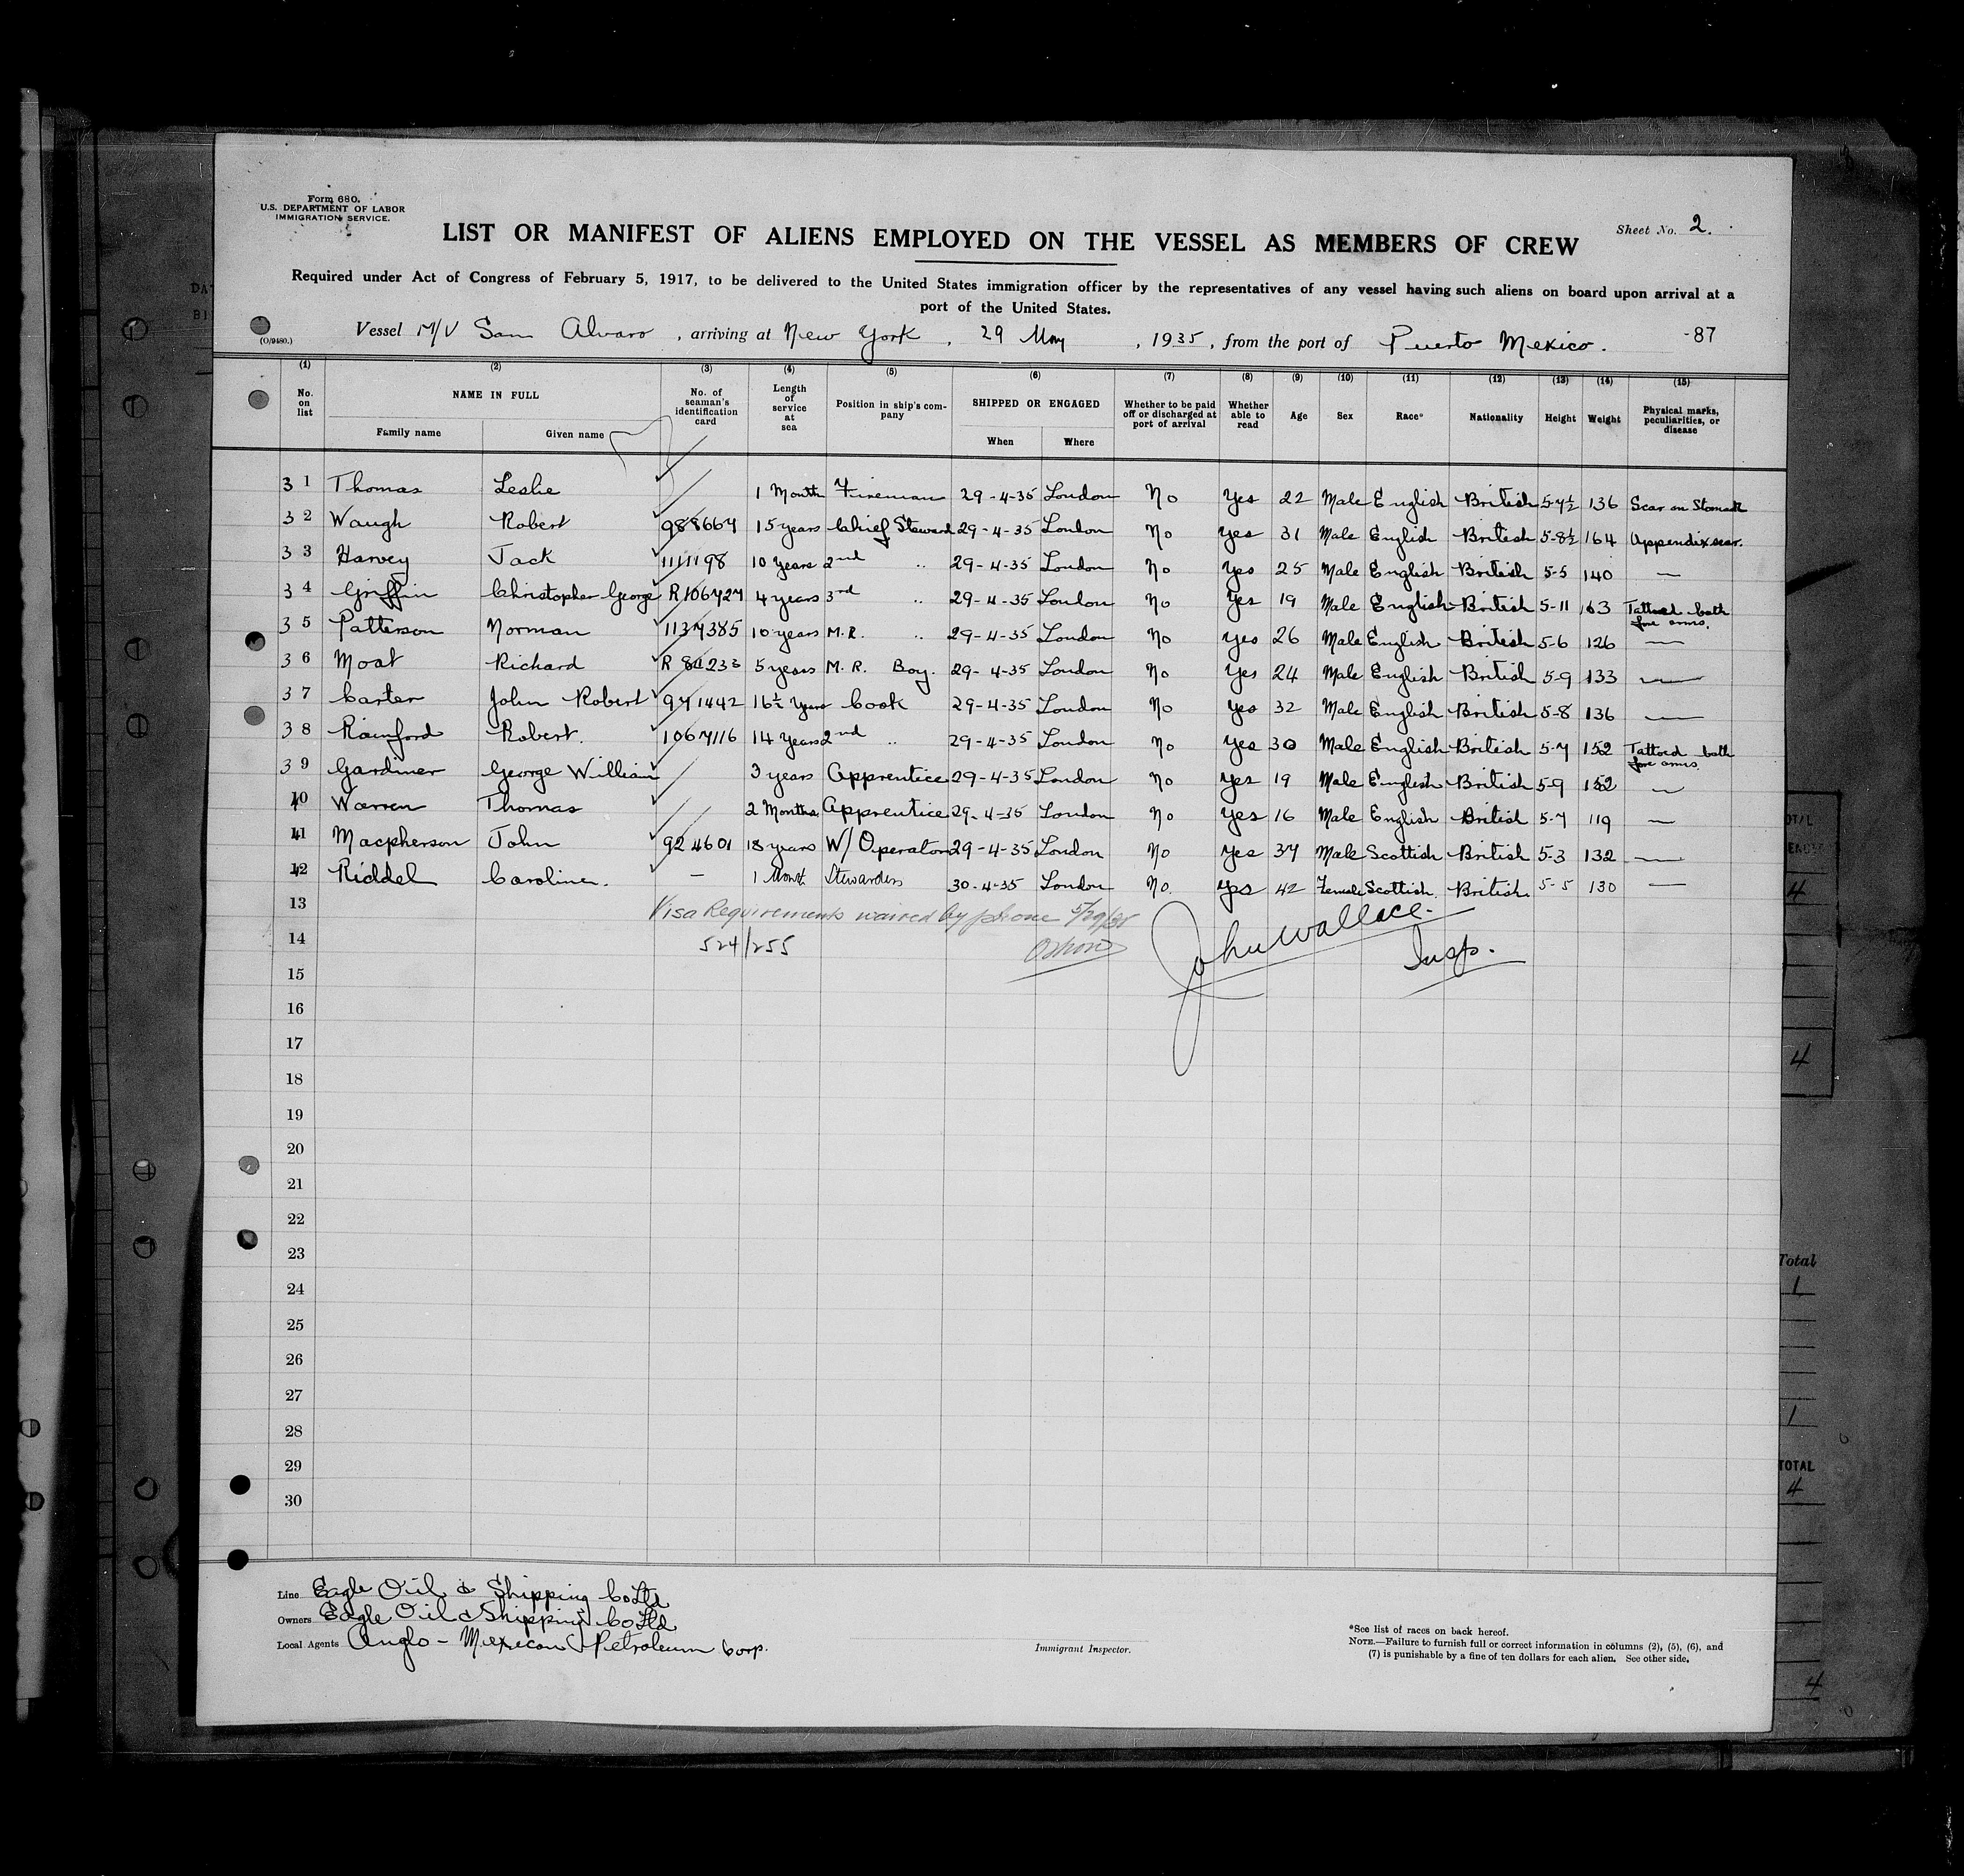 Form 680.
U.S. DEPARTMENT OF LABOR
IMMIGRATION SERVICE.
Sheet No. 2.
LIST OR MANIFEST OF ALIENS EMPLOYED ON THE VESSEL AS MEMBERS OF CREW
Required under Act of Congress of February 5, 1917, to be delivered to the United States immigration officer by the representatives of any vessel having such aliens on board upon arrival at a
port of the United States.
(O/9480.)
Vessel M/V San Alvaro , arriving at New York , 29 May , 1935 , from the port of Puerto Mexico. -87
(1) (2) (3) (4) (5) (6) (7) (8) (9) (10) (11) (12) (13) (14) (15)
No. on list NAME IN FULL Family name Given name No. of seaman's identification card Length of service at sea Position in ship's company SHIPPED OR ENGAGED When Where Whether to be paid off or discharged at port of arrival Whether able to read Age Sex Race* Nationality Height Weight Physical marks, peculiarities, or disease
3 1 Thomas Leslie 1 Month Fireman 29-4-35 London No Yes 22 Male English British 5-7½ 136 Scar on Stomach
3 2 Waugh Robert 988664 15 years Chief Steward 29-4-35 London No Yes 31 Male English British 5-8½ 164 Appendix scar.
3 3 Harvey Jack 1111198 10 years 2nd .. 29-4-35 London No Yes 25 Male English British 5-5 140 —
3 4 Griffin Christopher George R106727 4 years 3rd .. 29-4-35 London No Yes 19 Male English British 5-11 163 Tattoed both fore arms.
3 5 Patterson Norman 1137385 10 years M.R. .. 29-4-35 London No Yes 26 Male English British 5-6 126 —
3 6 Moat Richard R 84233 5 years M.R. Boy. 29-4-35 London No Yes 24 Male English British 5-9 133 —
3 7 Carter John Robert 971442 16½ Years Cook 29-4-35 London No Yes 32 Male English British 5-8 136 —
3 8 Rainford Robert. 1067116 14 Years 2nd .. 29-4-35 London No Yes 30 Male English British 5-7 152 Tattoed both fore arms.
3 9 Gardiner George William 3 years Apprentice 29-4-35 London No Yes 19 Male English British 5-9 152 —
40 Warren Thomas 2 Months Apprentice 29-4-35 London No Yes 16 Male English British 5-7 119 —
41 Macpherson John 924601 18 years W/Operator 29-4-35 London No Yes 37 Male Scottish British 5-3 132 —
42 Riddel Caroline. — 1 Month Stewardess 30-4-35 London No. Yes 42 Female Scottish British 5-5 130 —
13 Visa Requirements waived by phone 5/29/35
14 524/255 John Wallace.
Insp.
15
16
17
18
19
20
21
22
23
24
25
26
27
28
29
30
Line Eagle Oil & Shipping Co Ltd
Owners Eagle Oil & Shipping Co Ltd
Local Agents Anglo-Mexican Petroleum Corp.
Immigrant Inspector.
*See list of races on back hereof.
NOTE.—Failure to furnish full or correct information in columns (2), (5), (6), and
(7) is punishable by a fine of ten dollars for each alien. See other side.
4
4
Total
1
1
TOTAL
4
4